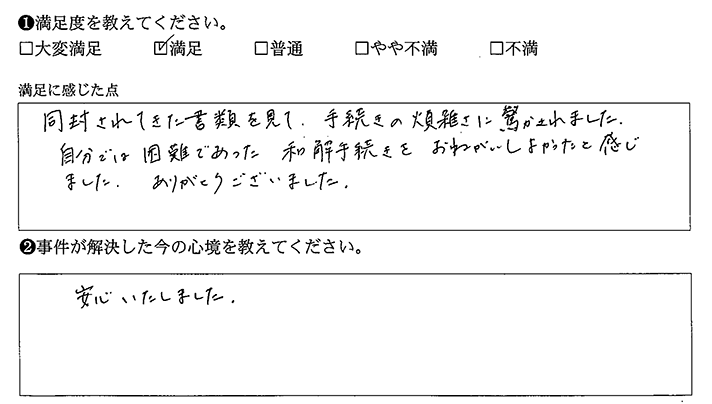 ❶満足度を教えてください。
□大変満足 ☑満足 □普通 □やや不満 □不満
満足に感じた点
同封されてきた書類を見て、手続きの煩雑さに驚かされました。
自分では困難であった和解手続きをおねがいしよかったと感じ
ました。ありがとうございました。
❷事件が解決した今の心境を教えてください。
安心いたしました。